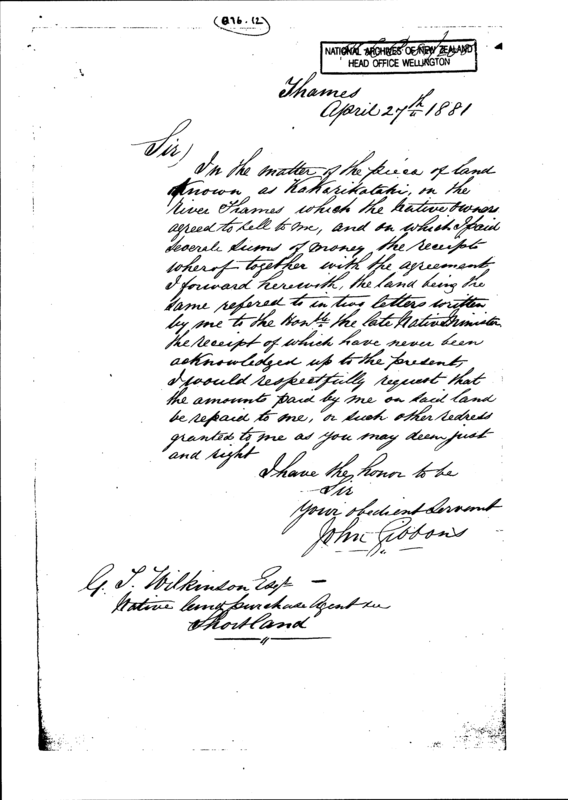 (876.12)
NATIONAL ARCHIVES OF NEW ZEALAND
HEAD OFFICE WELLINGTON
Thames
April 27th 1881
Sir,
In the matter of the pieca of land
Known as KaKariKatahi, on the
River Thames which the Native owners
agreed to sell to me, and on which I paid
severale sums of money the receipts
wherof together with the agreement
I forward herewith, the land being the
same refered to in two letters written
by me to the Honble the late Native Minister
the receipt of which have never been
acknowledged up to the present,
I would respectfully request that
the amounts paid by me on said land
be repaid to me, or such other redress
granted to me as you may deem just
and right
I have the honor to be
Sir
your obedient Servant
John Gibbons
G. T. Wilkinson Esqr
Native land purchase Agent &c
Shortland